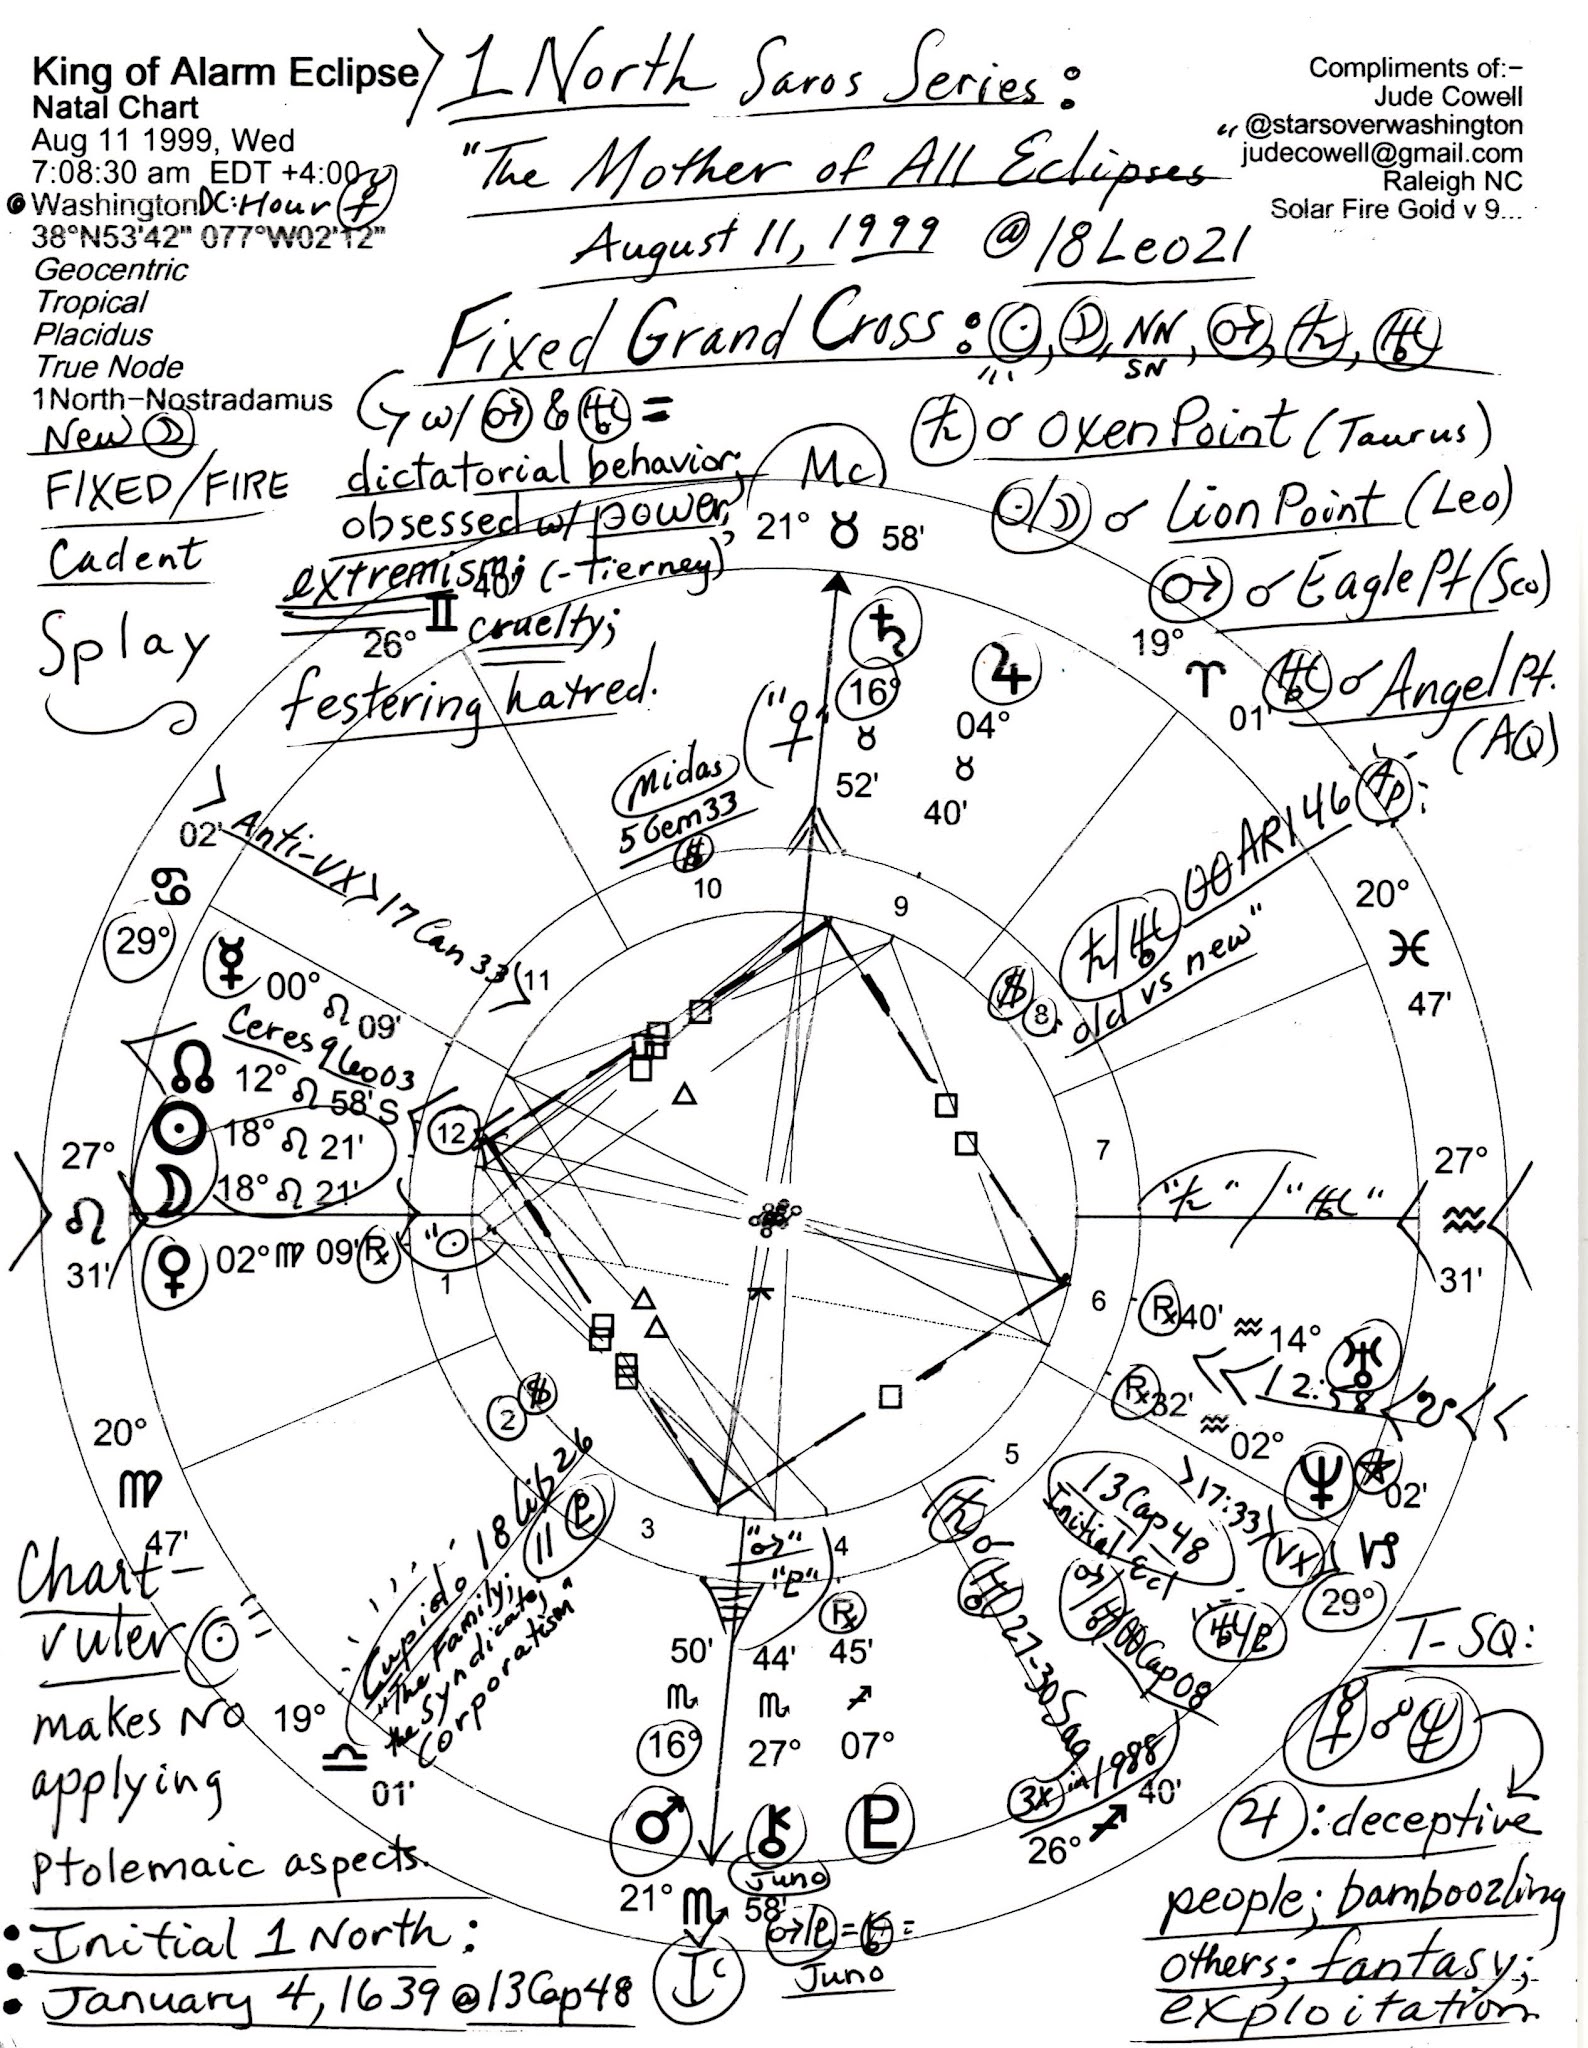 King of Alarm Eclipse
Natal Chart
Aug 11 1999, Wed
7:08:30 am EDT +4:00
Washington DC: Hour ☿
38°N53'42" 077°W02'12"
Geocentric
Tropical
Placidus
True Node
1North-Nostradamus
New ☽
FIXED/FIRE
Cadent
Splay
1 North Saros Series:
"The Mother of All Eclipses"
August 11, 1999 @ 18Leo21
Compliments of:-
Jude Cowell
@starsoverwashington
judecowell@gmail.com
Raleigh NC
Solar Fire Gold v 9...
Fixed Grand Cross: ☉, ☽, NN, ♂, ♄, ♅
SN
w/ ♂ & ♅ =
dictatorial behavior;
obsessed w/ power;
extremism; (-Tierney)
cruelty;
festering hatred.
♄ ☌ Oxen Point (Taurus)
☉/☽ ☌ Lion Point (Leo)
♂ ☌ Eagle Pt (Sco)
♅ ☌ Angel Pt.
(AQ)
Mc
21° ♉ 58'
40'
♊
26°
19°
♈
01'
♄
16°
♉
52'
♃
04°
♉
40'
"♀"
Midas
5Gem33
$
> Anti-VX > 17 Can 33 >
02'
♋
29°
♄/♅ 00ARI46 AP:
"old vs new"
20°
♓
47'
☿ 00° ♌ 09'
Ceres 9Leo03
☊ 12° ♌ 58' S
☉ 18° ♌ 21'
☽ 18° ♌ 21'
27°
♌
31'
♀ 02° ♍ 09' ℞
"☉
10
9
11
$ 8
12
7
1
6
2 $
5
3
4
"♄" / "♅"
27°
♒
31'
℞ 40' ♒ 14° ♅
<< 12:58 < ☋ <<
℞ 32' ♒ 02° ♆
02'
♑
29°
20°
♍
47'
> 17:33 > VX
13Cap48
Initial Ecl
♂/♅ 00Cap08
♄ ☌ ♅ 27-30 Sag
3x in 1988
40'
26° ♐
Cupido 18 Lib 26
"The Family;
the Syndicate;
Corporatism"
11 ♇
19°
♎
01'
"♂"
"♇"
50'
♏
16°
♂
44'
♏
27°
⚷
Juno
℞
45'
♐
07°
♇
21° ♏ 58'
♂/♇ = ♅ =
Juno
IC
Chart-
ruler ☉
makes No
applying
Ptolemaic aspects.
Initial 1 North:
January 4, 1639 @ 13Cap48
T-SQ:
☿ ☍ ♆
♃: deceptive
people; bamboozling
others; fantasy;
exploitation